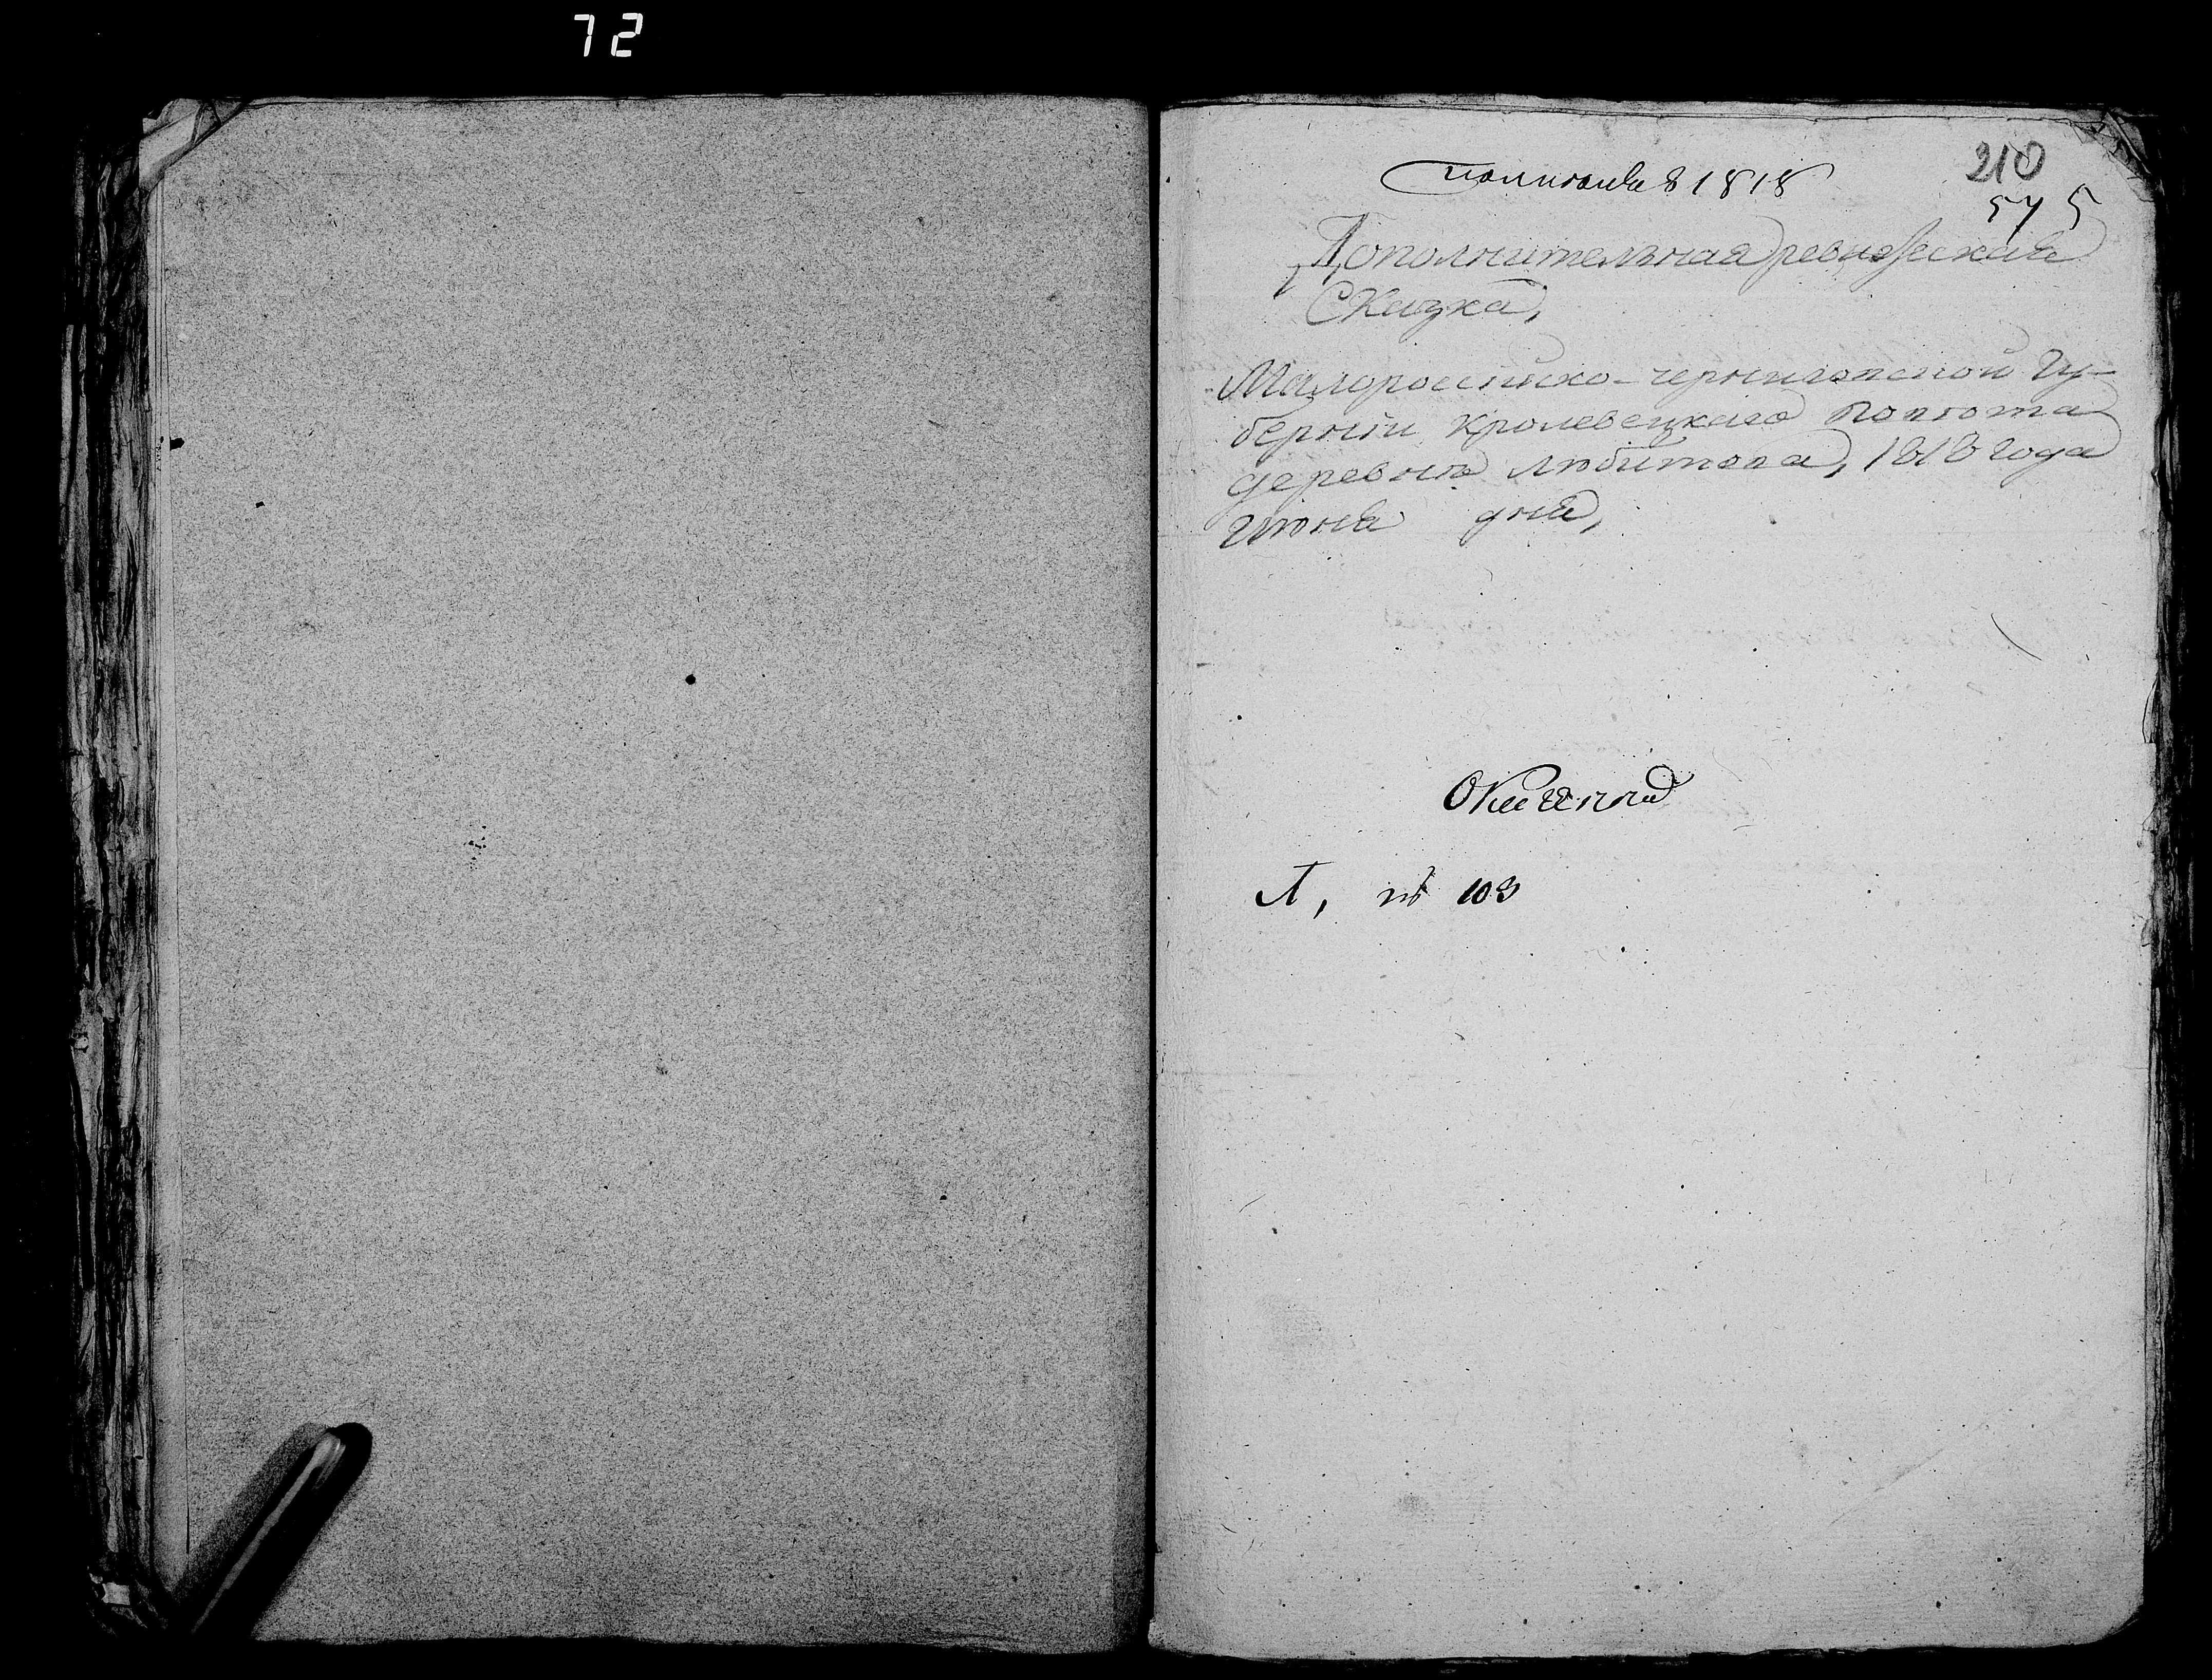 72
210
8 1818
575
Дополнительная ревизская
Сказка,
Малороссійско-черниговской Гу-
берніи Кролевецкаго Повѣта
деревни Любитова, 1818 года
Июня дня,
Л, № 103